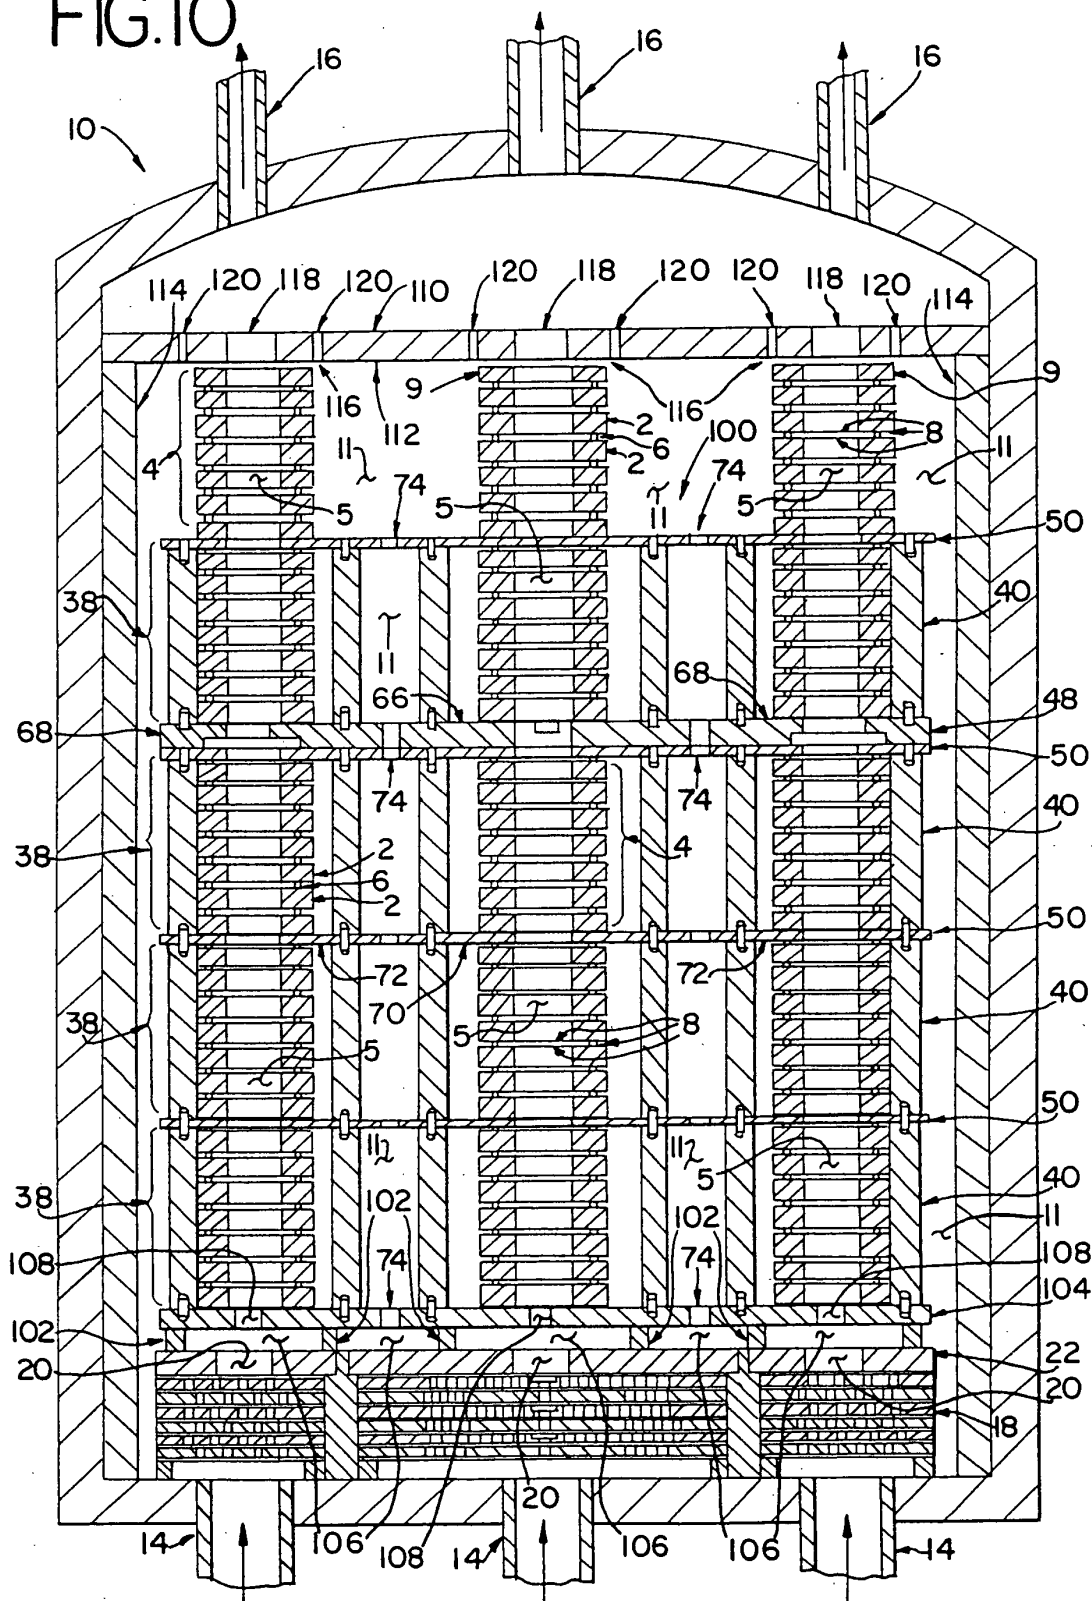 FIG.10
16 16 16
10
114 120 118 120 110 120 118 120 120 118 120 114
9 116 112 116 9
2 6 2 100 8
4 11 74 11 74 11
5 5 5 50
38 11 40
66 68 48
68 50
74 74 40
38 2 6 2 4
50
72 70 72
38 5 5 8 40
50
11 11 5
38 102 102 40
11
108 74 74 108
104
102
20 22
20
18
20
14 106 108 14 106 106 14